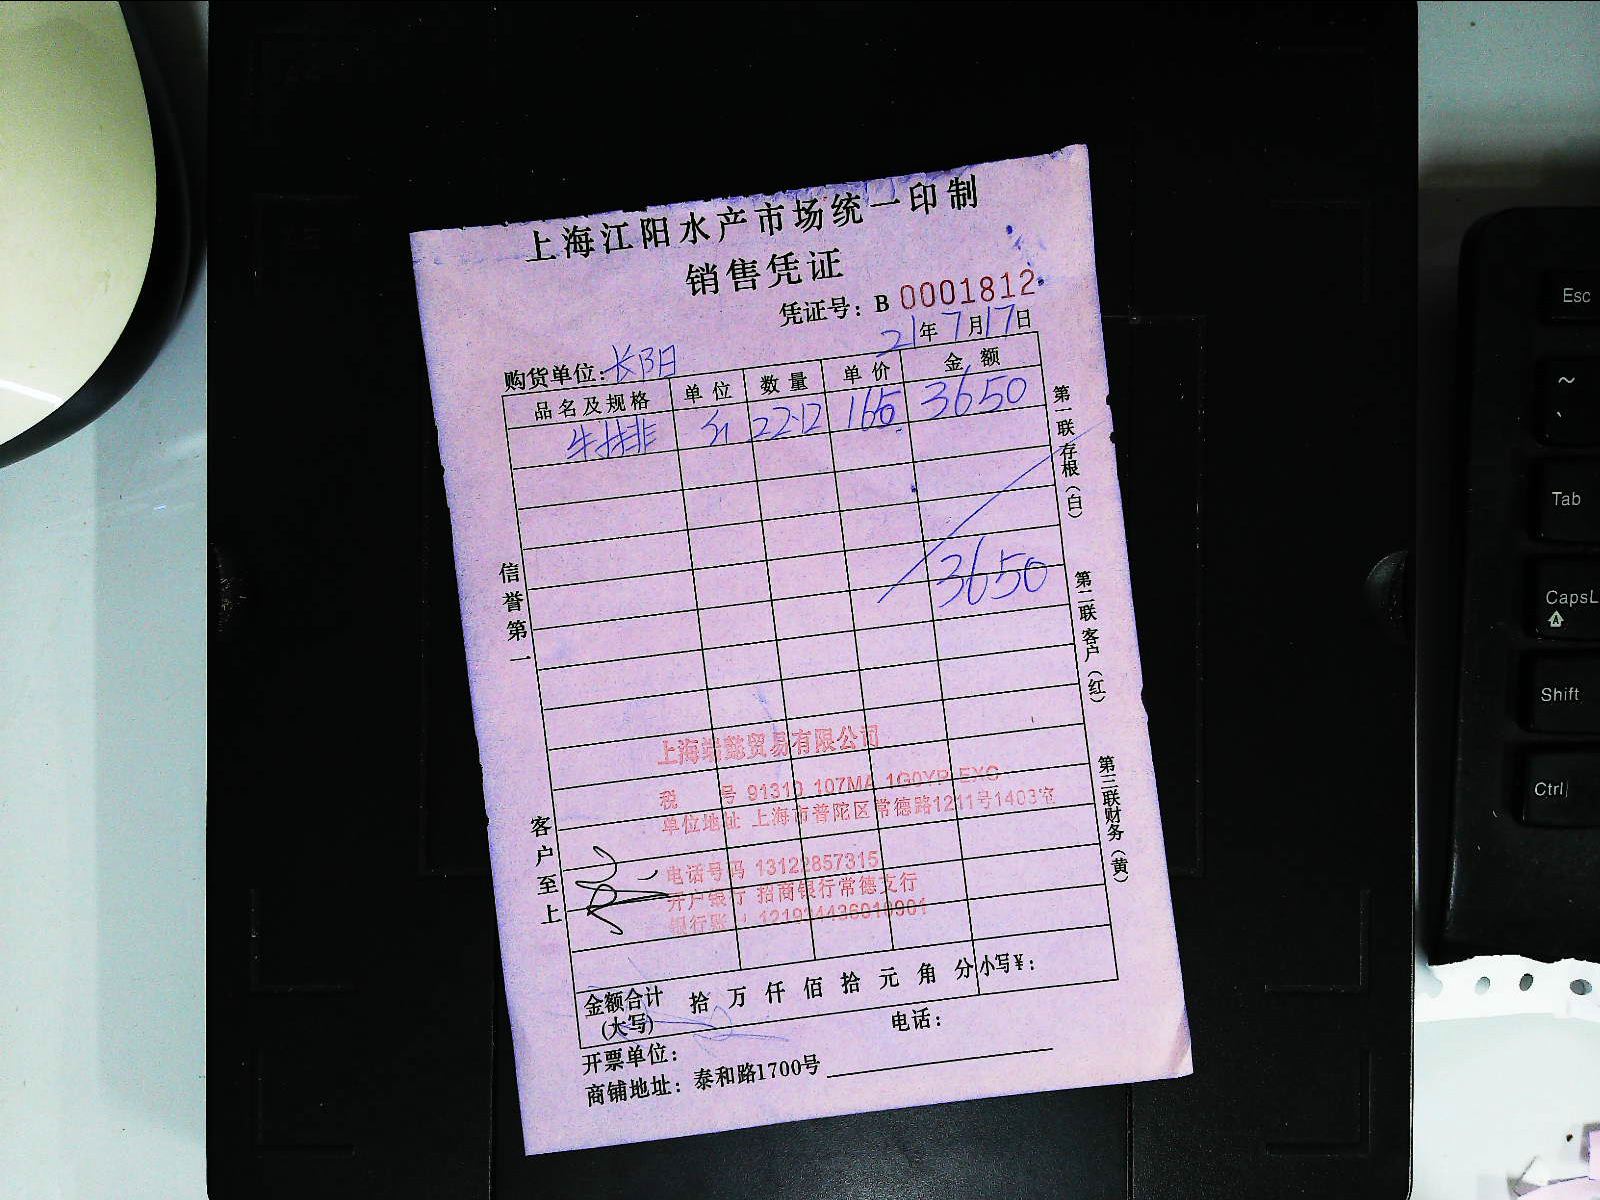 上海江阳水产市场统一印制
销售凭证
凭证号：B 0001812
21年7月17日
购货单位：长阳
品名及规格 单位 数量 单价 金额
牛排 斤 22.12 165 3650
3650
信誉第一
客户至上
第一联存根（白）
第二联客户（红）
第三联财务（黄）
上海端懿贸易有限公司
税 号 91310 107MA 1G0YP EXC
单位地址 上海市普陀区常德路1211号1403室
电话号码 13122857315
开户银行 招商银行常德支行
银行账户 121934436010901
金额合计(大写) 拾 万 仟 佰 拾 元 角 分 小写¥：
开票单位： 电话：
商铺地址：泰和路1700号
Esc
~
`
Tab
CapsL
A
Shift
Ctrl